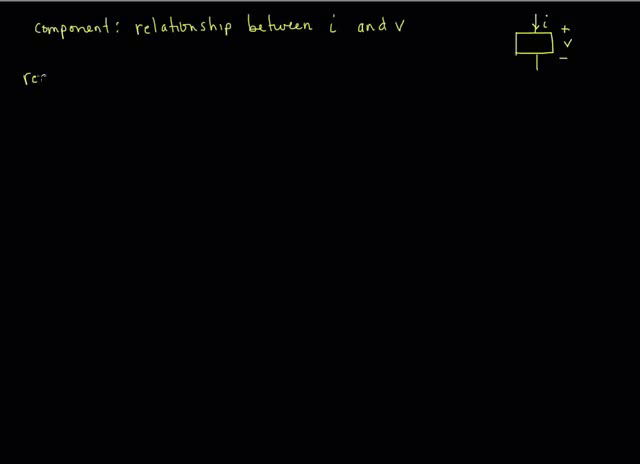 component: relationship between i and v
i
+
v
−
re